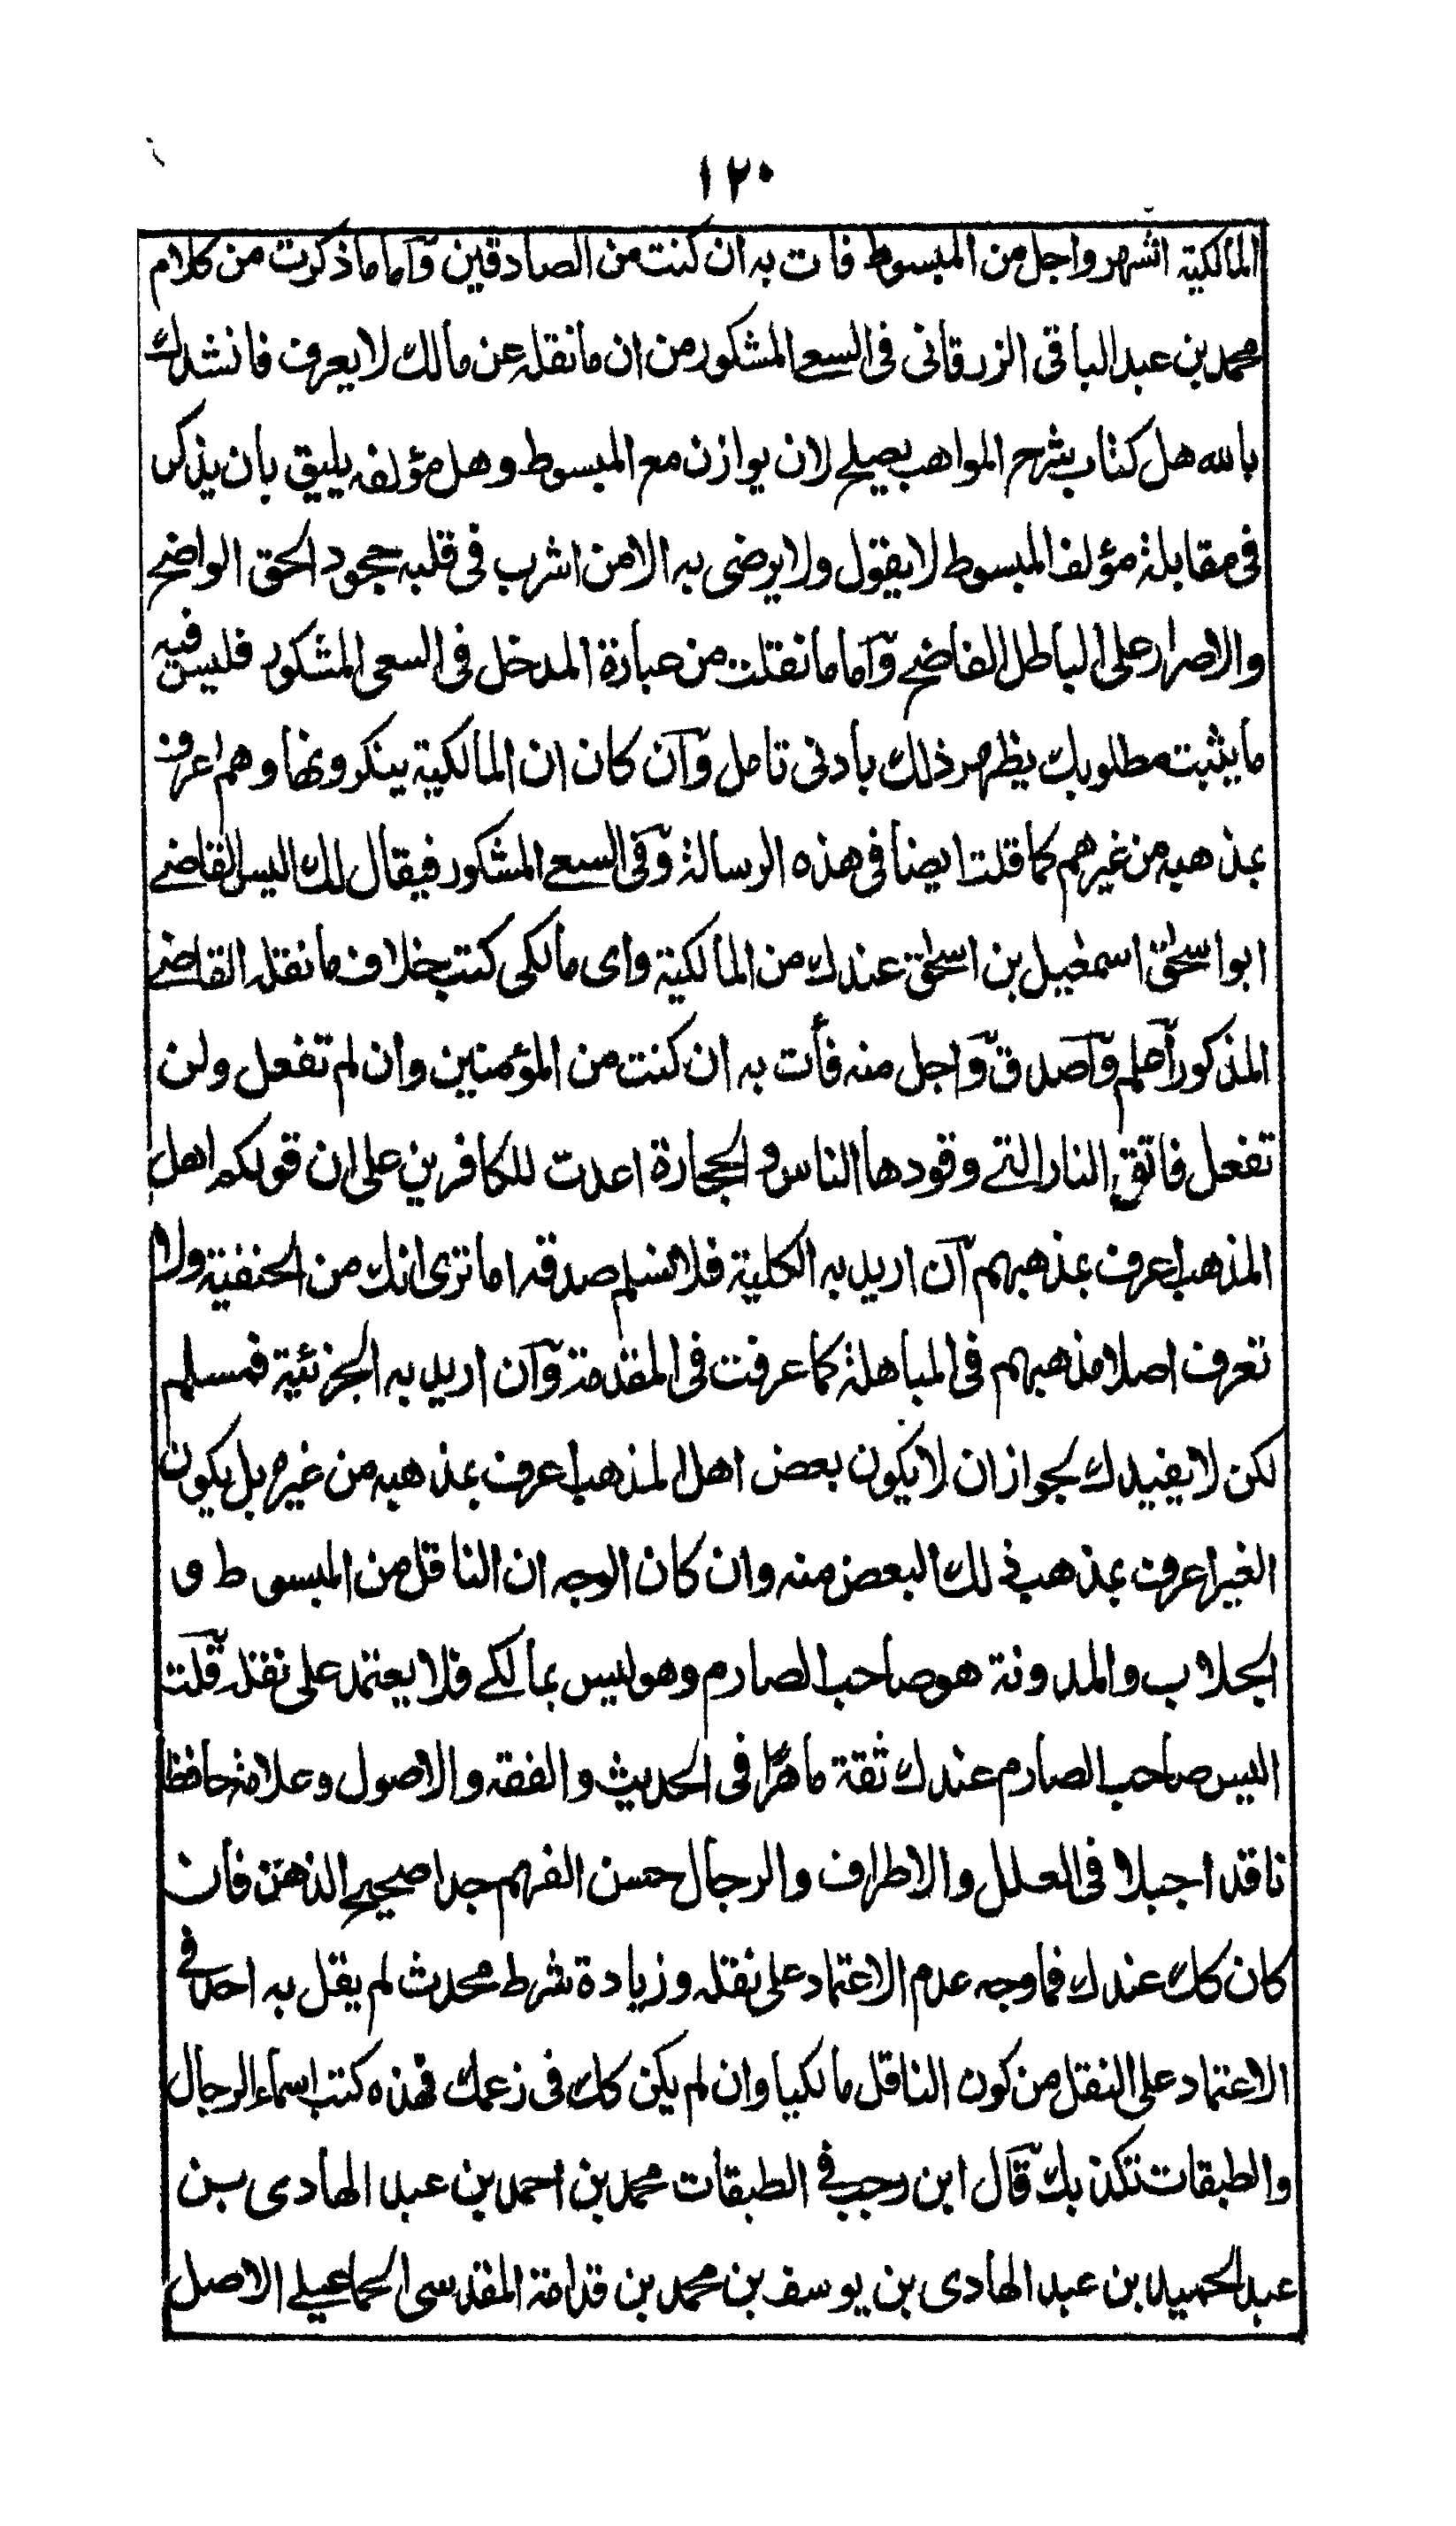 ١٢٠
المالكية اشهر واجل من المبسوط فات به ان كنت من الصادقين وآما ما ذكرت من كلام
محمد بن عبد الباقى الزرقانى فى السعے المشكور من ان ما نقله عن مالك لا يعرف فانشدك
بالله هل كتاب شرح المواهب يصلح لان يوازن مع المبسوط وهل مؤلفه يليق بان يذكر
فى مقابلة مؤلف المبسوط لا يقول ولا يرضى به الا من اشرب فى قلبه جحود الحق الواضح
والاصرار على الباطل الفاضح وآما ما نقلت من عبارة المدخل فى السعى المشكور فليس فيه
ما يثبت مطلوبك يظهر ذلك بادنى تامل وآن كان ان المالكية ينكرونها وهم اعرف
بمذهبه من غيرهم كما قلت ايضا فى هذه الرسالة وفى السعے المشكور فيقال لك اليس القاضے
ابو اسحٰق اسمٰعيل بن اسحٰق عندك من المالكية واى مالكى كتب خلاف ما نقله القاضے
المذكور أعلم وآصدق وآجل منه فأت به ان كنت من المؤمنين وان لم تفعل ولن
تفعل فاتق النار التے وقودها الناس والحجارة اعدت للكافرين على ان قولكم اهل
المذهب اعرف بمذهبهم آن اريد به الكلية فلا نسلم صدقه اما ترى انك من الحنفية ولا
تعرف اصلا مذهبهم فى المباهلة كما عرفت فى المقدمة وآن اريد به الجزئية فمسلم
لكن لا يفيدك لجواز ان لا يكون بعض اهل المذهب اعرف بمذهبه من غيره بل يكون
الغير اعرف بمذهب ذلك البعض منه وان كان الوجه ان الناقل من المبسوط و
الجلاب والمدونة هو صاحب الصارم وهو ليس بمالكے فلا يعتمد على نقله قلت
اليس صاحب الصارم عندك ثقة ماهرًا فى الحديث والفقه والاصول وعلامة حافظا
ناقدا جبلا فى العلل والاطراف والرجال حسن الفهم جدا صحيح الذهن فان
كان كك عندك فما وجه عدم الاعتماد على نقله وزيادة شرط محدث لم يقل به احد فى
الاعتماد على النقل من كون الناقل مالكيا وان لم يكن كك فى زعمك فهذه كتب اسماء الرجال
والطبقات تكذبك قآل ابن رجب فى الطبقات محمد بن احمد بن عبد الهادى بن
عبد الحميد بن عبد الهادى بن يوسف بن محمد بن قدامة المقدسى الحماعيلے الاصل